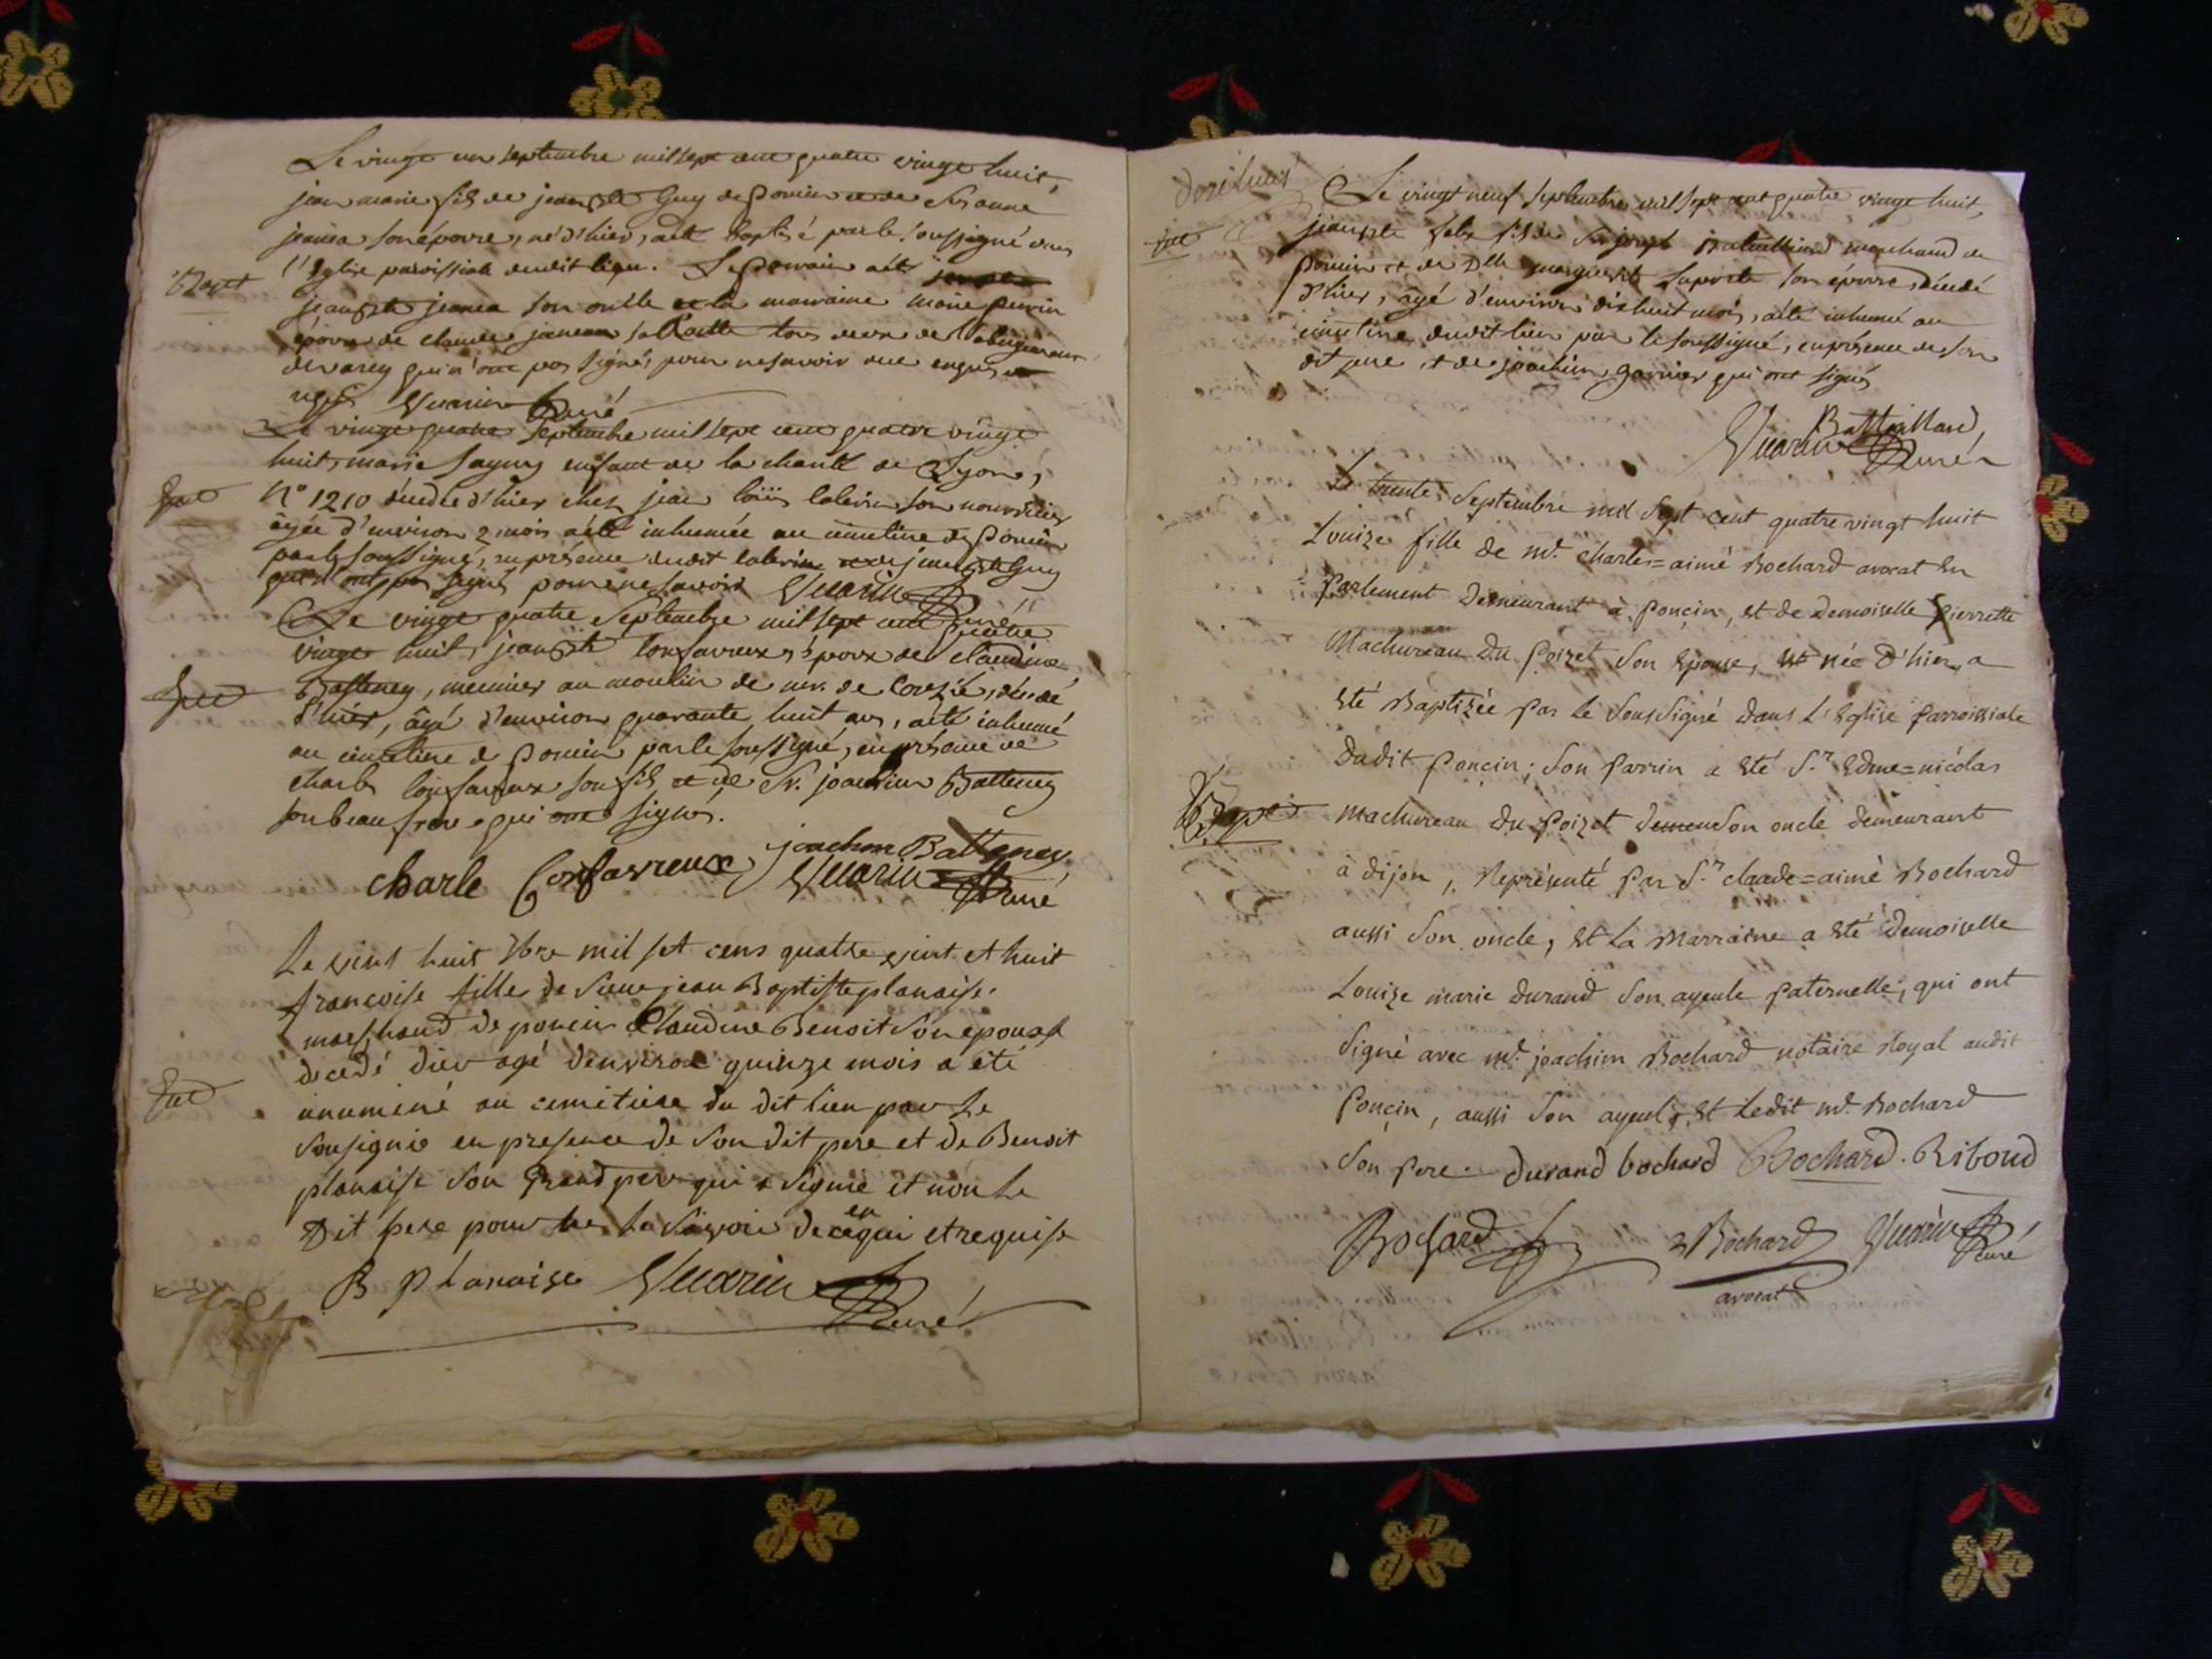 Le vingt un septembre mil sept cent quatre vingt huit,
jean marie fils de jean bte Guy de Poncin et de Susanne
janea son épouse, né d'hier, a été baptisé par le soussigné dans
l'Eglise paroissiale dudit lieu. Le Parrain a été
Bapt
jean bte janea son oncle et la marraine marie perrin
épouse de claude janea sa tante tous deux de
de varey qui n'ont pas signés pour ne savoir de ce enquis et
requis Vuarin Curé
Le vingt quatre septembre mil sept cent quatre vingt
huit, marie Sagny enfant de la charité de Lyon,
N° 1210 décédée d'hier chez jean loüis laberin son nourricier
âgée d'environ 2 mois a été inhumée au cimetière de Poncin
par le soussigné, en présence dudit laberin et de jean bte Guy
qui n'ont pas signés pour ne savoir Vuarin Curé
Le vingt quatre Septembre mil sept cent quatre
vingt huit, jean bte Confavreux époux de claudine
Batteney, meunier au moulin de mr. de , décédé
d'hier, âgé d'environ quarante huit ans, a été inhumé
au cimetière de Poncin par le soussigné, en présence de
charle Confavreux son fils et de Sr. joachim Batteney
son beau frere qui ont signés.
joachim Batteney
charle Confavreux Vuarin Curé
Le vint huit 7bre mil set cens quatre vint et huit
francoise fille de Sieur jean Baptiste planaise
marchand de poncin Claudine Benoit son epouse
decedé dier agé denviron quinze mois a été
au cimetiere du dit lieu par le
sousignié en presence de son dit pere et de Benoit
planaise son Grand pere qui a signié et non le
Dit pere pour ne le savoir de ce en qui et requise
B planaise Vuarin Curé
dixi huit
Le vingt neuf septembre mil sept cent quatre vingt huit,
jean bte felix fils de Sr. joseph Battaillard marchand de
Poncin et de Dlle marguerite Laporte son épouse, décédé
d'hier, âgé d'environ dixhuit mois, a été inhumé au
cimetière dudit lieu par le soussigné, en présence de son
dit pere, et de joachim garnier qui ont signés
Battaillard
Vuarin Curé
Le trente Septembre mil Sept cent quatre vingt huit
Louize fille de me. charles=aimé Bochard avocat En
Parlement Demeurant à Poncin, Et de Demoiselle Pierrette
Machureau Du Poizet Son Epouse, née d'hier, a
Eté Baptizée par Le Soussigné Dans L'Eglise Parroissiale
Dudit Poncin; Son Parrin a Eté Sr. Edme=nicolas
Machureau Du Poizet demeu Son oncle demeurant
à dijon, Représenté Par Sr. claude=aimé Bochard
aussi Son oncle, Et La Marraine a Eté Demoiselle
Louize marie Durand Son ayeule Paternelle, qui ont
Signé avec me. joachim Bochard notaire Royal audit
Poncin, aussi Son ayeul, Et Ledit me. Bochard
Son pere. Durand bochard Bochard. Riboud
Bochard Bochard Vuarin Curé
avocat